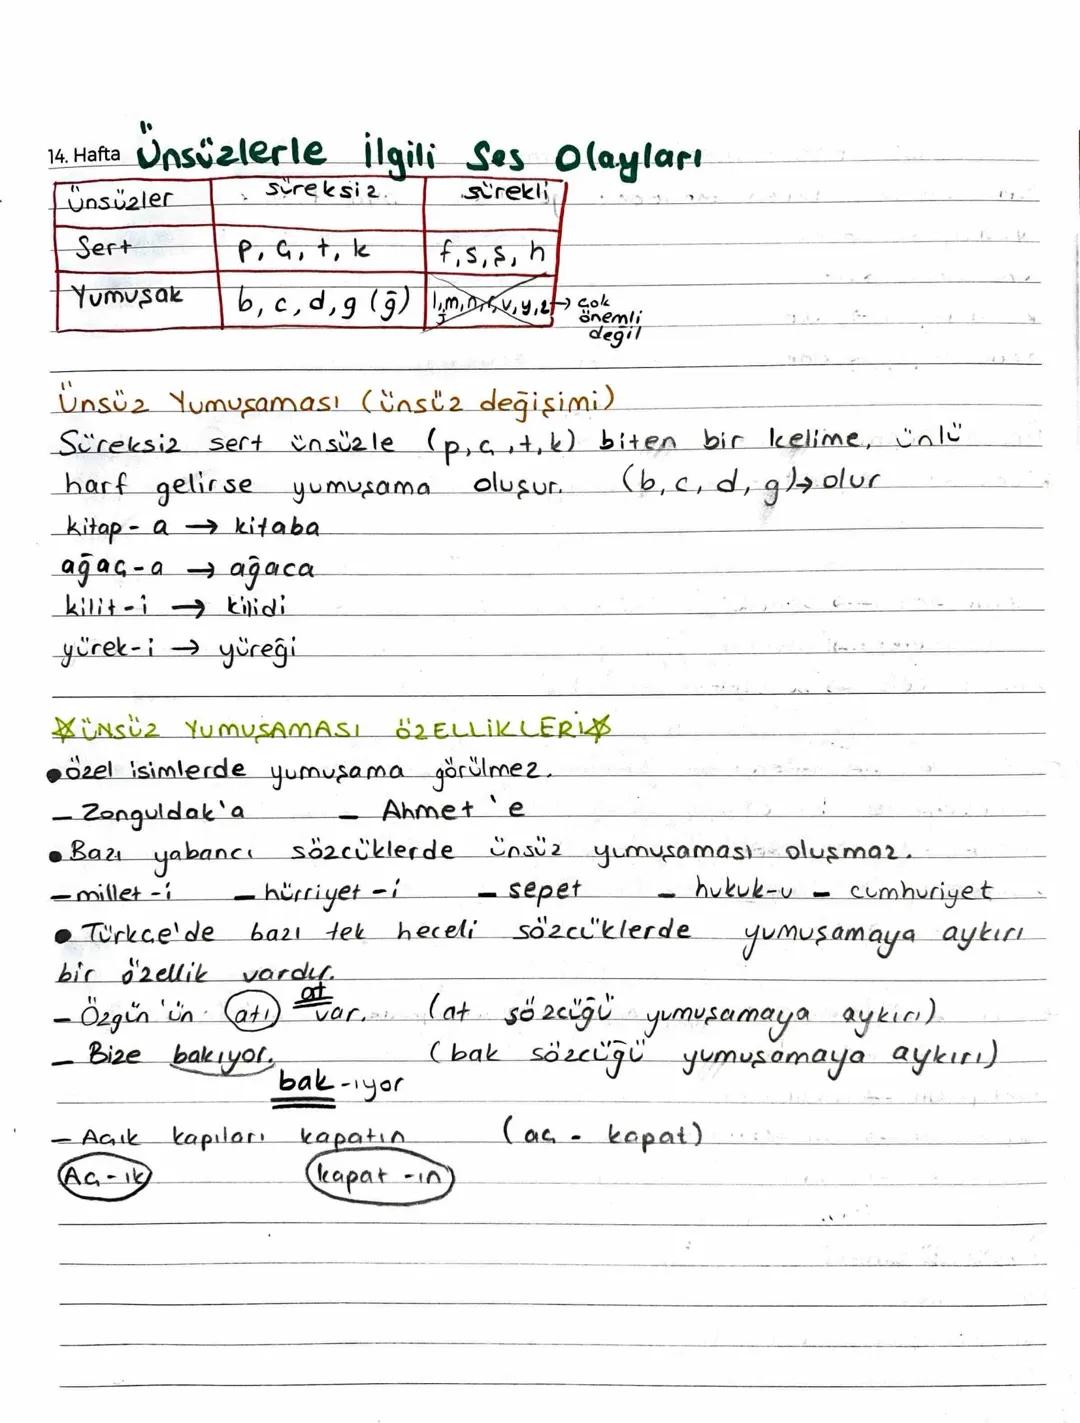 14. Hafta Ünsüzlerle İlgili Ses Olayları
Ünsüzler süreksiz sürekli
Sert p, ç, t, k f, s, ş, h
Yumuşak b, c, d, g (ğ) l, m, n, r, v, y, z → çok
j önemli
değil
Ünsüz Yumuşaması (ünsüz değişimi)
Süreksiz sert ünsüzle (p, ç, t, k) biten bir kelime, ünlü
harf gelirse yumuşama oluşur. (b, c, d, g) → olur
kitap - a → kitaba
ağaç - a → ağaca
kilit - i → kilidi
yürek - i → yüreği
ÜNSÜZ YUMUŞAMASI ÖZELLİKLERİ
● özel isimlerde yumuşama görülmez.
– Zonguldak'a – Ahmet 'e
● Bazı yabancı sözcüklerde ünsüz yumuşaması oluşmaz.
– millet - i – hürriyet - i – sepet – hukuk-u – cumhuriyet
● Türkçe'de bazı tek heceli sözcüklerde yumuşamaya aykırı
bir özellik vardır.
at
– Özgün 'ün atı var. (at sözcüğü yumuşamaya aykırı)
– Bize bakıyor. (bak sözcüğü yumuşamaya aykırı)
bak -ıyor
– Açık kapıları kapatın (aç - kapat)
Aç - ık kapat -ın